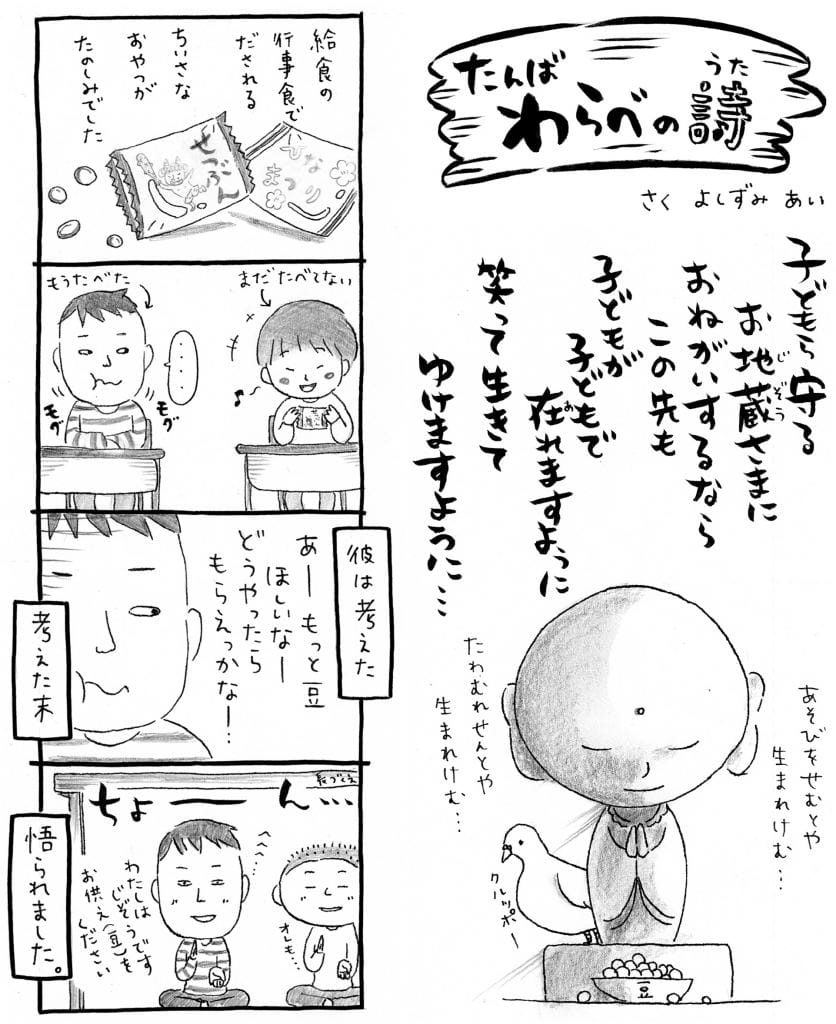 たんば
わらべの詩
うた
さく よしずみ あい
子どもら守る
お地蔵さまに
じぞう
おねがいするなら
この先も
子どもが
子どもで
在れますように
あ
笑って生きて
ゆけますように…
あそびをせむとや
生まれけむ…
たわむれせんとや
生まれけむ…
クルッポー
豆
給食の
行事食で
だされる
ちいさな
おやつが
たのしみでした
ひなまつり
せつぶん
まだたべてない
もうたべた
・・・・
モグ
モグ
彼は考えた
あーもっと豆
ほしいなー
どうやったら
もらえっかな〜…
考えた末
ちょーーん…
へへへ…
わたしは
じぞうです
お供え(豆)も
ください
オレも…
悟られました。